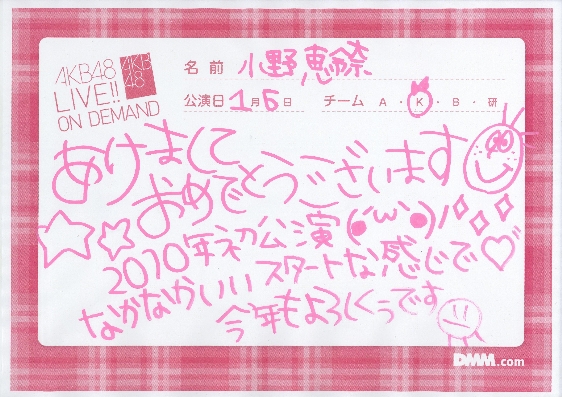 AKB48
LIVE!!
ON DEMAND
AKB
48
名前 小野恵令奈
公演日 1月6日 チーム A・K・B・研
あけまして
おめでとうございます
2010年初公演(´ω`●)ﾉ
なかなかいいスタートな感じで♡
今年もよろしくぅです
DMM.com